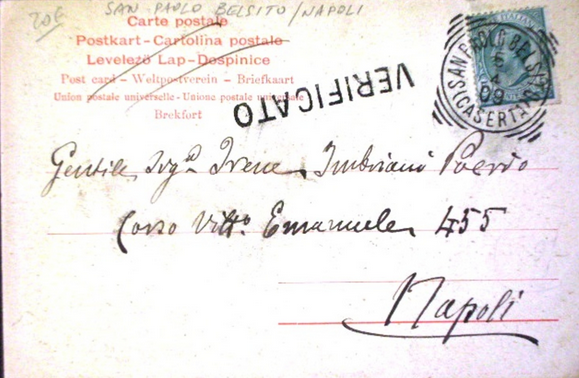 20€ SAN PAOLO BELSITO/NAPOLI
Carte postale
Postkart - Cartolina postale
Levelezö Lap - Dospinice
Post card - Weltpostverein - Briefkaart
Union postale universelle - Unione postale universale
Brekfort
VERIFICATO
SAN PAOLO BEL SITO
(CASERTA)
09
Gentile Sigª Irene Imbriani Poerio
Corso Vittº Emanuele 455
Napoli